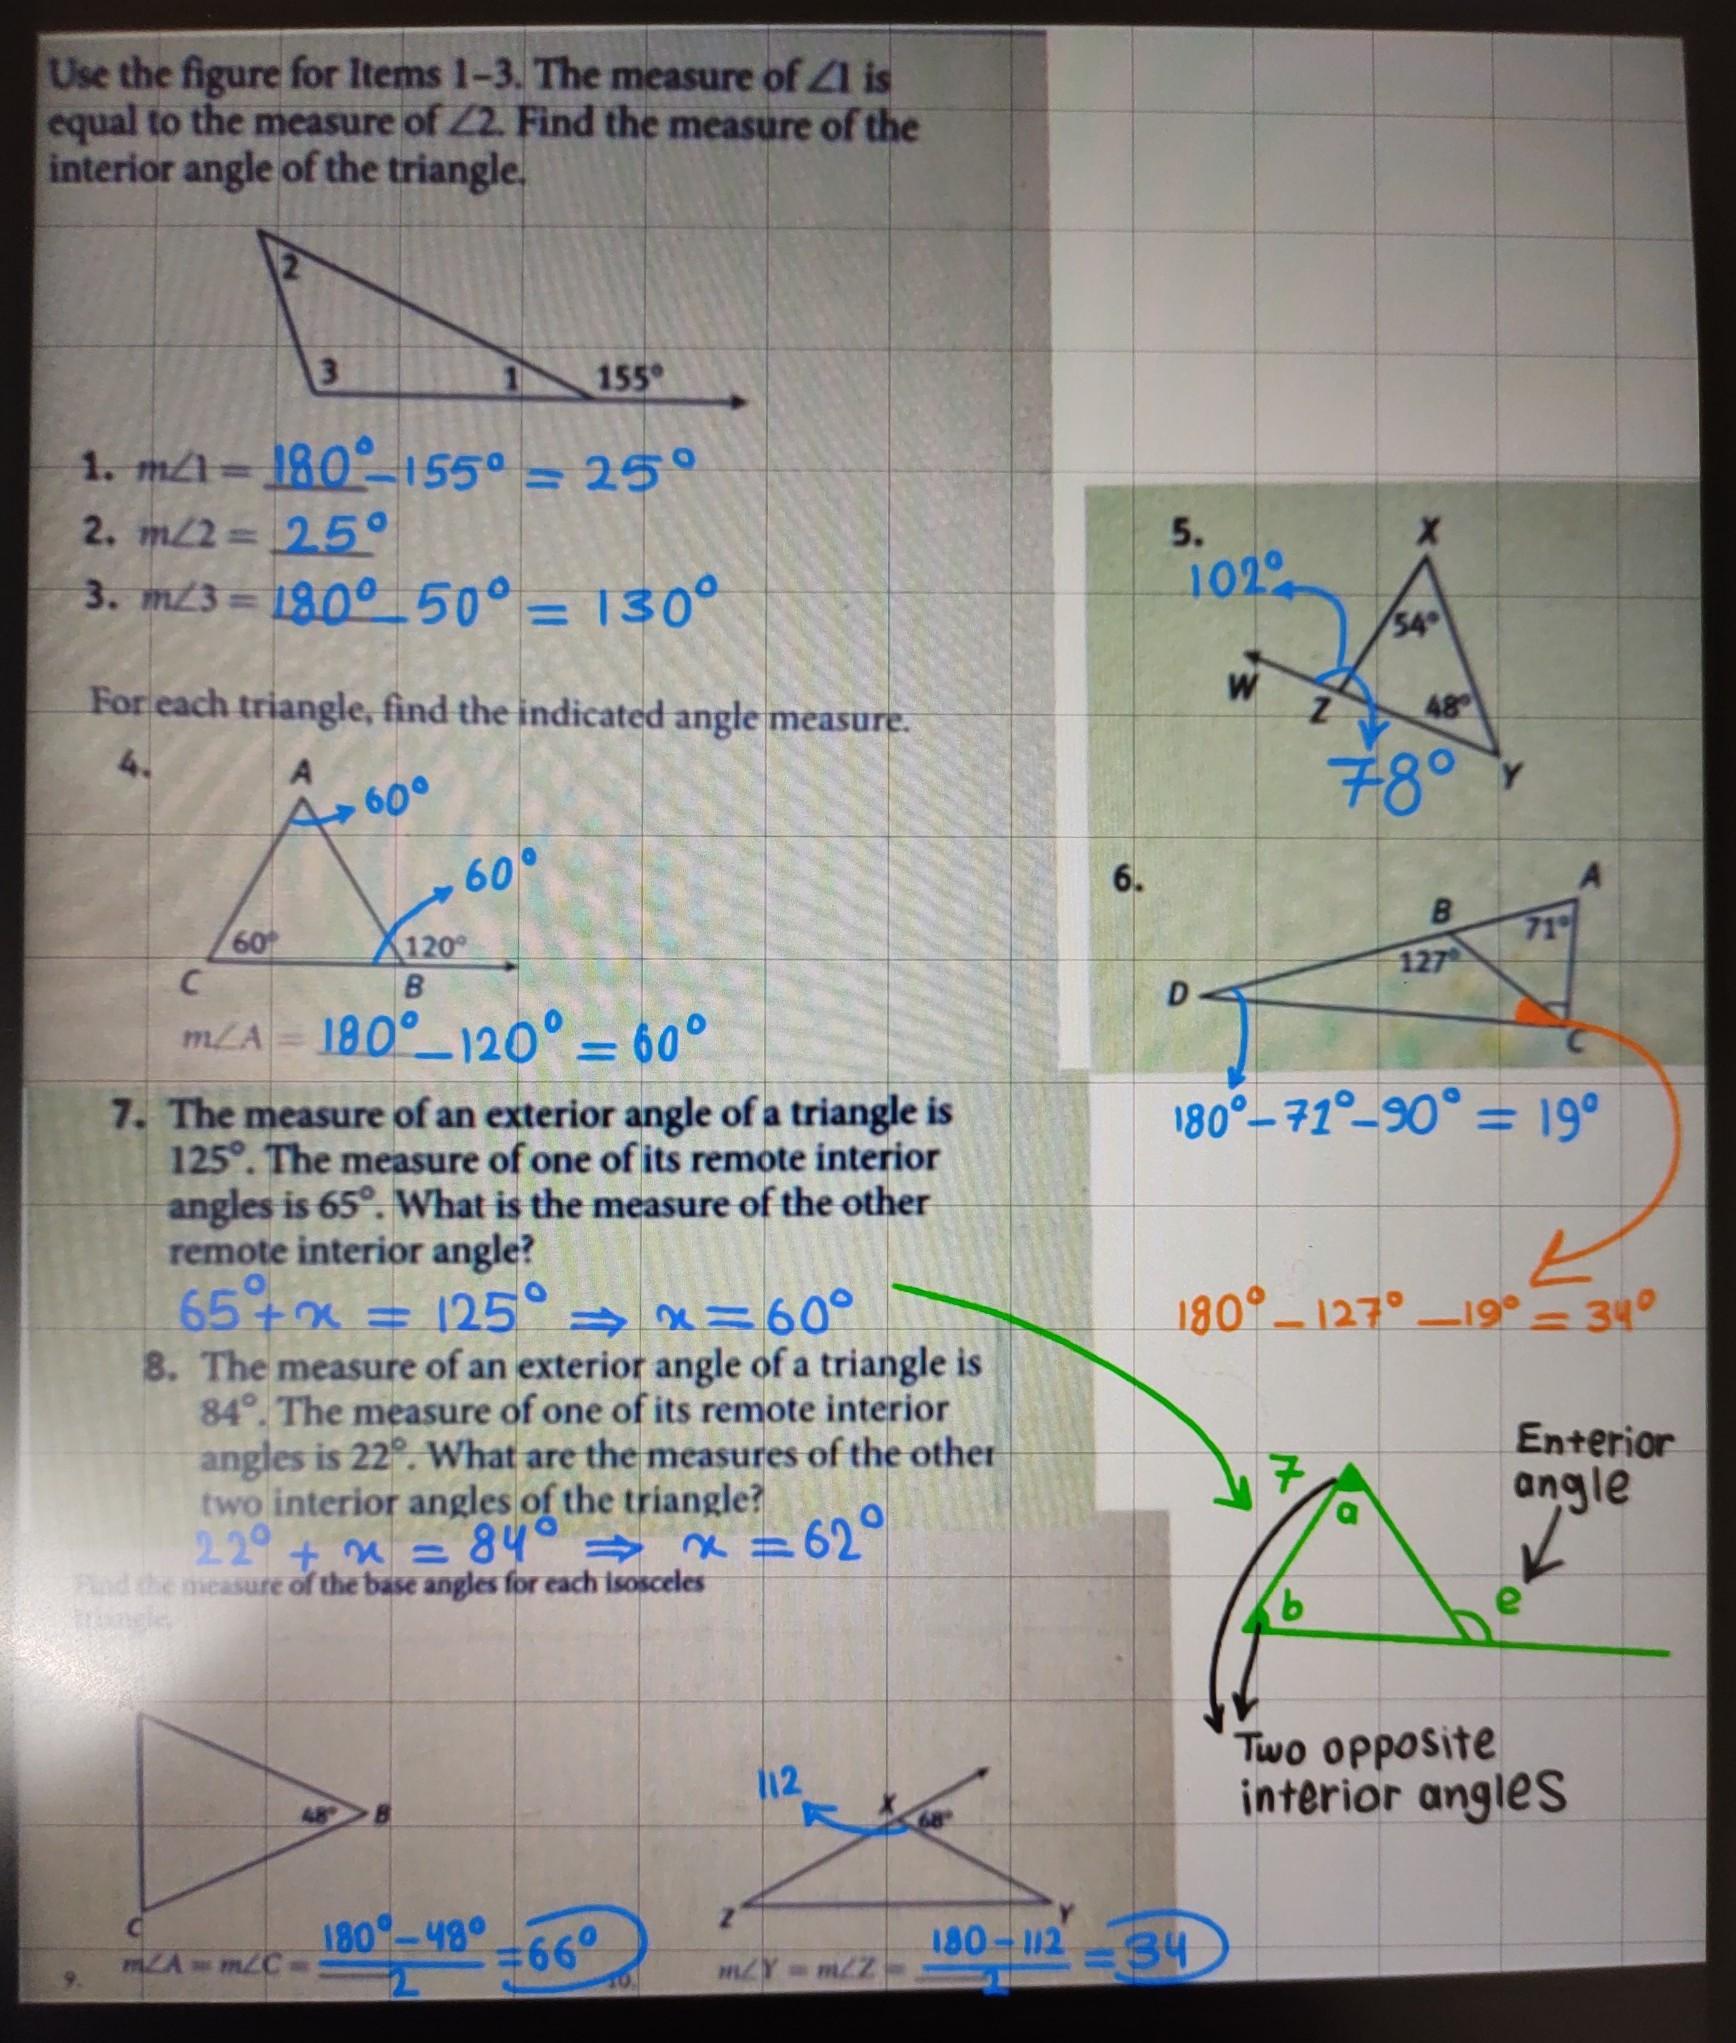 Use the figure for Items 1–3. The measure of ∠1 is
equal to the measure of ∠2. Find the measure of the
interior angle of the triangle.
2
3
1
155°
1. m∠1 = 180° – 155° = 25°
2. m∠2 = 25°
3. m∠3 = 180° – 50° = 130°
For each triangle, find the indicated angle measure.
4.
A
60°
60°
60°
120°
C
B
m∠A = 180° – 120° = 60°
5.
X
102°
54°
W
Z
48°
78°
Y
6.
A
B
71°
127°
D
C
180° – 71° – 90° = 19°
180° – 127° – 19° = 34°
7. The measure of an exterior angle of a triangle is
125°. The measure of one of its remote interior
angles is 65°. What is the measure of the other
remote interior angle?
65° + x = 125° ⇒ x = 60°
8. The measure of an exterior angle of a triangle is
84°. The measure of one of its remote interior
angles is 22°. What are the measures of the other
two interior angles of the triangle?
22° + x = 84° ⇒ x = 62°
Enterior
angle
7
a
b
e
Two opposite
interior angles
Find the measure of the base angles for each isosceles
triangle.
48°
B
C
9. m∠A = m∠C = 180° – 48° / 2 = 66°
112
X
68°
Z
Y
10. m∠Y = m∠Z = 180 – 112 / 2 = 34